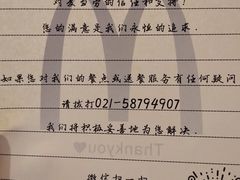 对麦当劳的信任和支持!
您的满意是我们永恒的追求.
如果您对我们的餐点或送餐服务有任何疑问
请拨打021-58794907
我们将积极妥善地为您解决.
Thankyou
微信扫一扫